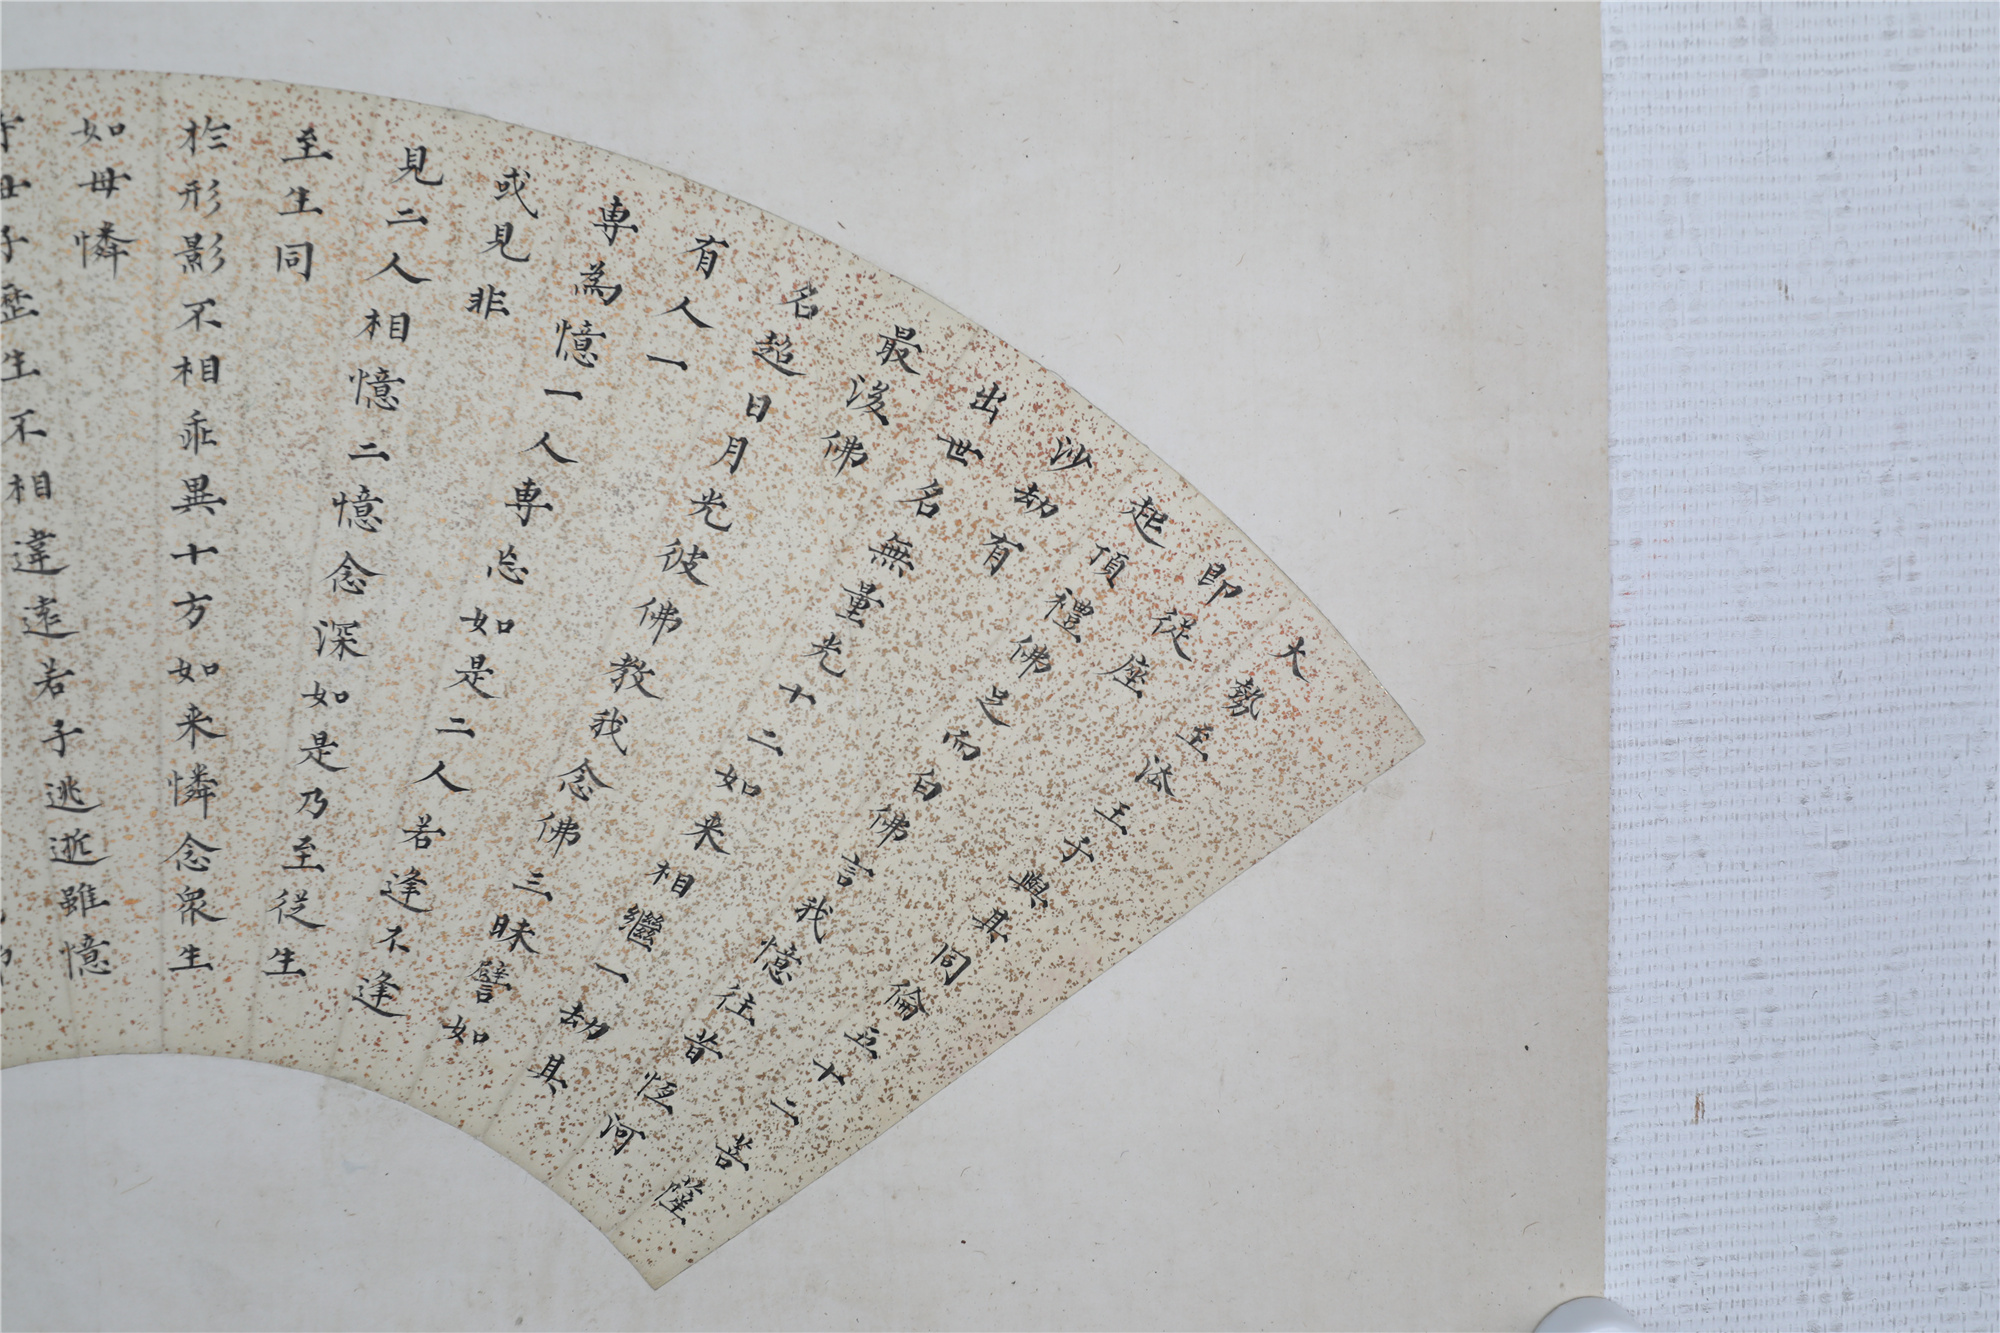 大勢至法王子與其同倫五十二菩薩
即從座
起頂禮佛足而白佛言我憶往昔恆河
沙劫有
出世名無量光十二如来相繼一劫其
最後佛
名超日月光彼佛教我念佛三昧譬如
有人一
専為憶一人専忘如是二人若逢不逢
或見非
見二人相憶二憶念深如是乃至從生
至生同
於形影不相乖異十方如来憐念眾生
如母憐
子歷生不相違遠若子逃逝雖憶